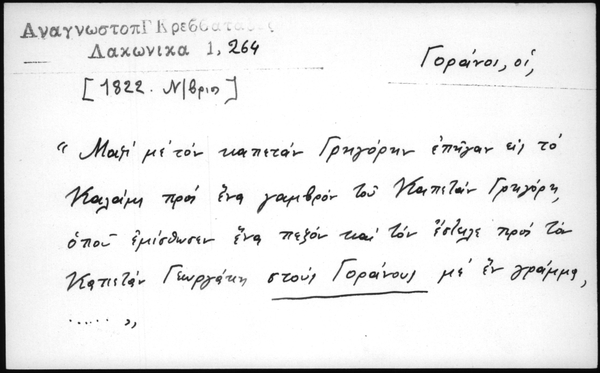 Αναγνωστοπ Γ Κρεββατας
Λακωνικα 1, 264
Γοράνοι, οἱ,
[1822. Ν/βριο]
“Μαζί μέ τόν καπετάν Γρηγόρην ἐπῆγαν εἰς τό
Καλάμι πρός ἕνα γαμβρόν τοῦ Καπετάν Γρηγόρη,
ὁποῦ ἐμίσθωσεν ἕνα πεζόν καί τόν ἔστειλε πρός τόν
Καπετάν Γεωργάκη στούς Γοράνους μέ ἕν γράμμα,
..... ”